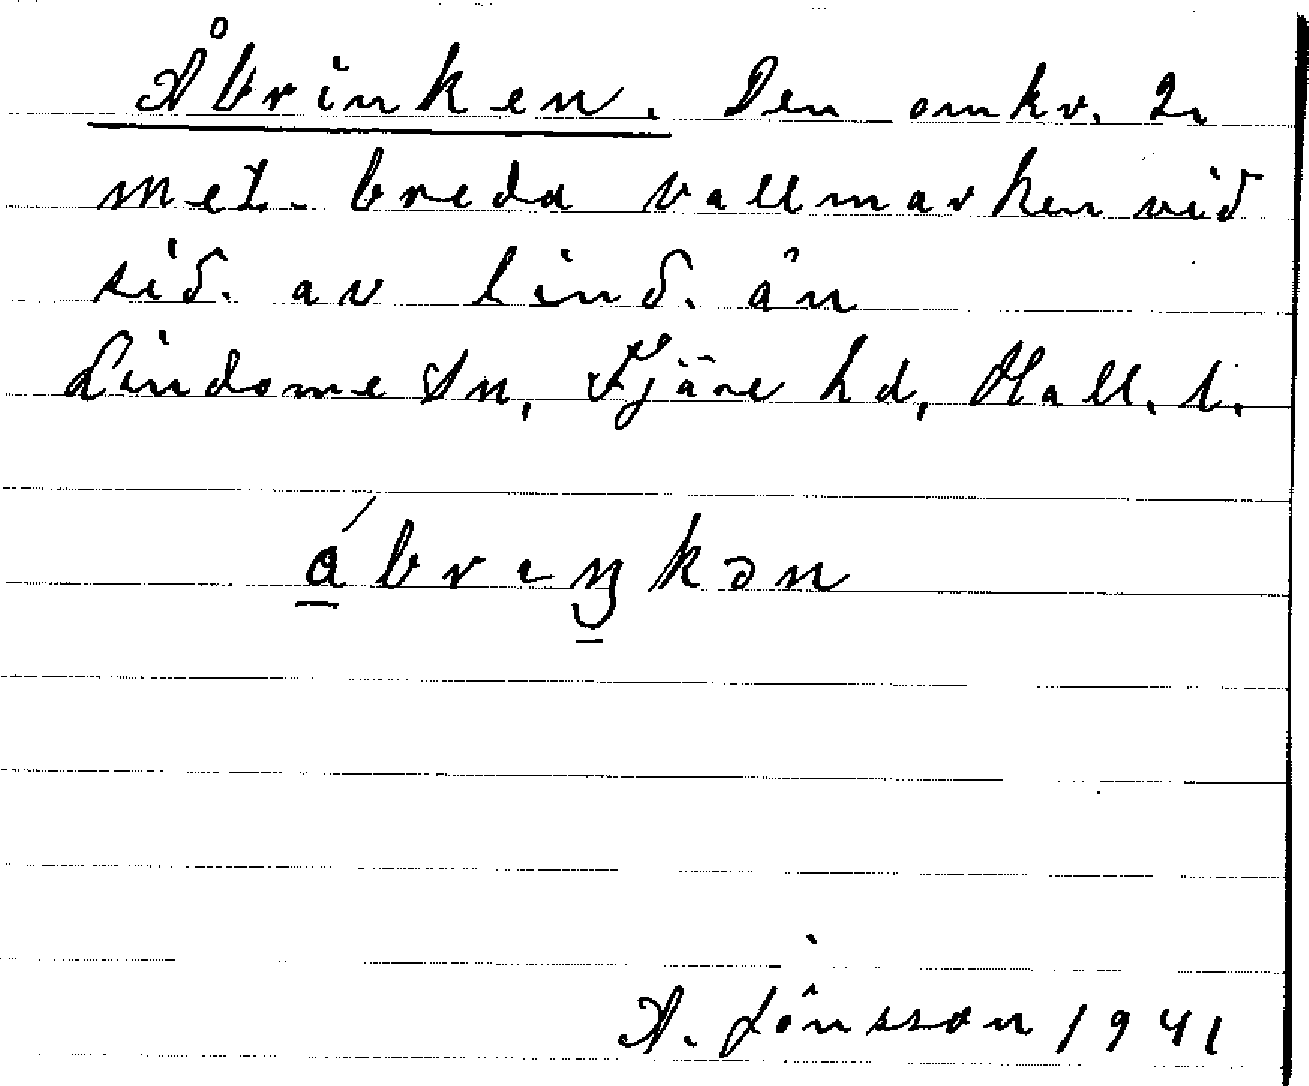 Åbrinken. Den omkr. 2
met. breda vallmarken vid
sid. av Lind. ån
Lindome Sn, Fjäre hd, Hall. l.
åbrıŋkən
A. Jönsson 1941